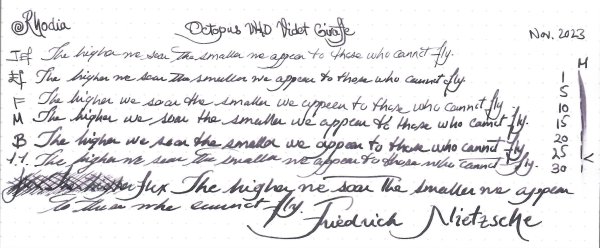 @Rhodia Octopus W&D Violet Giraffe Nov. 2023
M
Jef The higher we soar the smaller we appear to those who cannot fly.
Ef The higher we soar the smaller we appear to those who cannot fly. 1
F The higher we soar the smaller we appear to those who cannot fly. 5
M The higher we soar the smaller we appear to those who cannot fly. 10
15
B The higher we soar the smaller we appear to those who cannot fly. 20
1.1. The higher we soar the smaller we appear to those who cannot fly. 25
30
flex The higher we soar the smaller we appear
to those who cannot fly. Friedrich Nietzsche